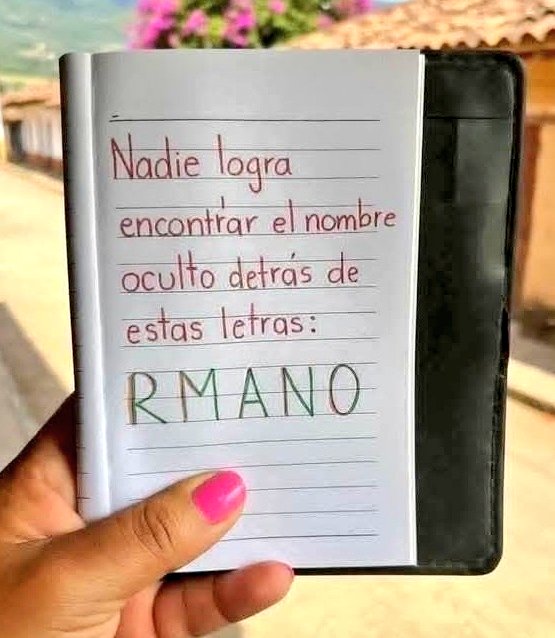 Nadie logra
encontrar el nombre
oculto detrás de
estas letras:
RMANO